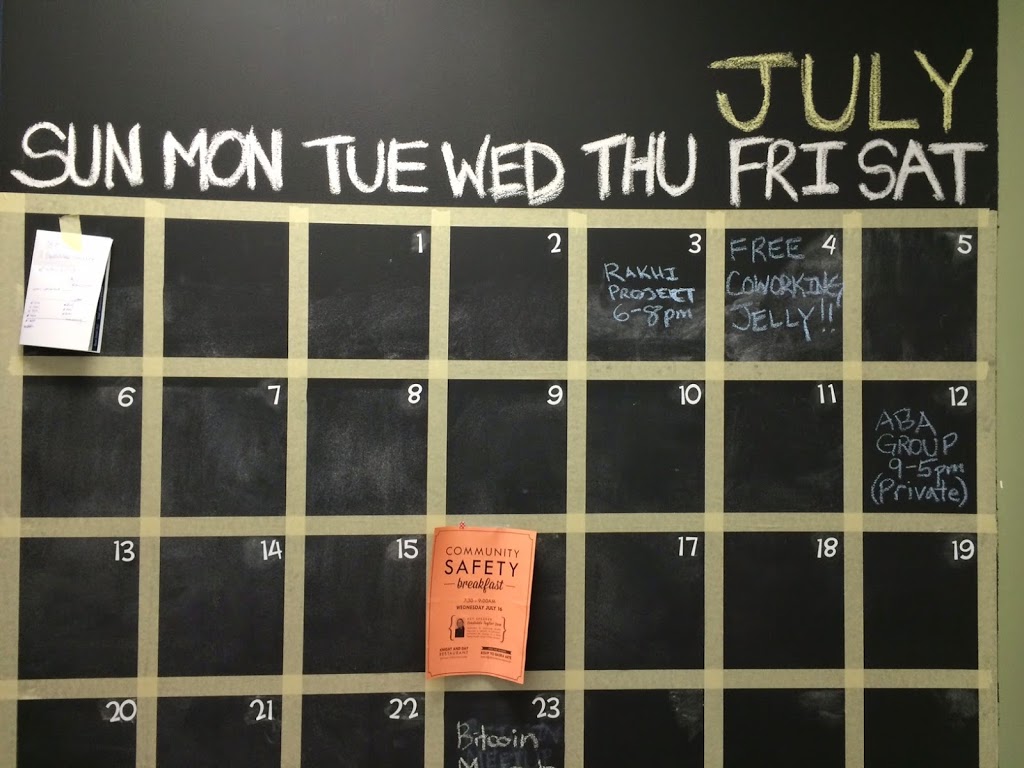 JULY
SUN MON TUE WED THU FRI SAT
1 2 3 4 5
RAKHI
PROJECT
6-8pm
FREE
COWORKING
JELLY!!
6 7 8 9 10 11 12
ABA
GROUP
9-5pm
(Private)
13 14 15 17 18 19
COMMUNITY
SAFETY
breakfast
7:30 - 9:00AM
WEDNESDAY JULY 16
RESTAURANT
20 21 22 23
Bitcoin